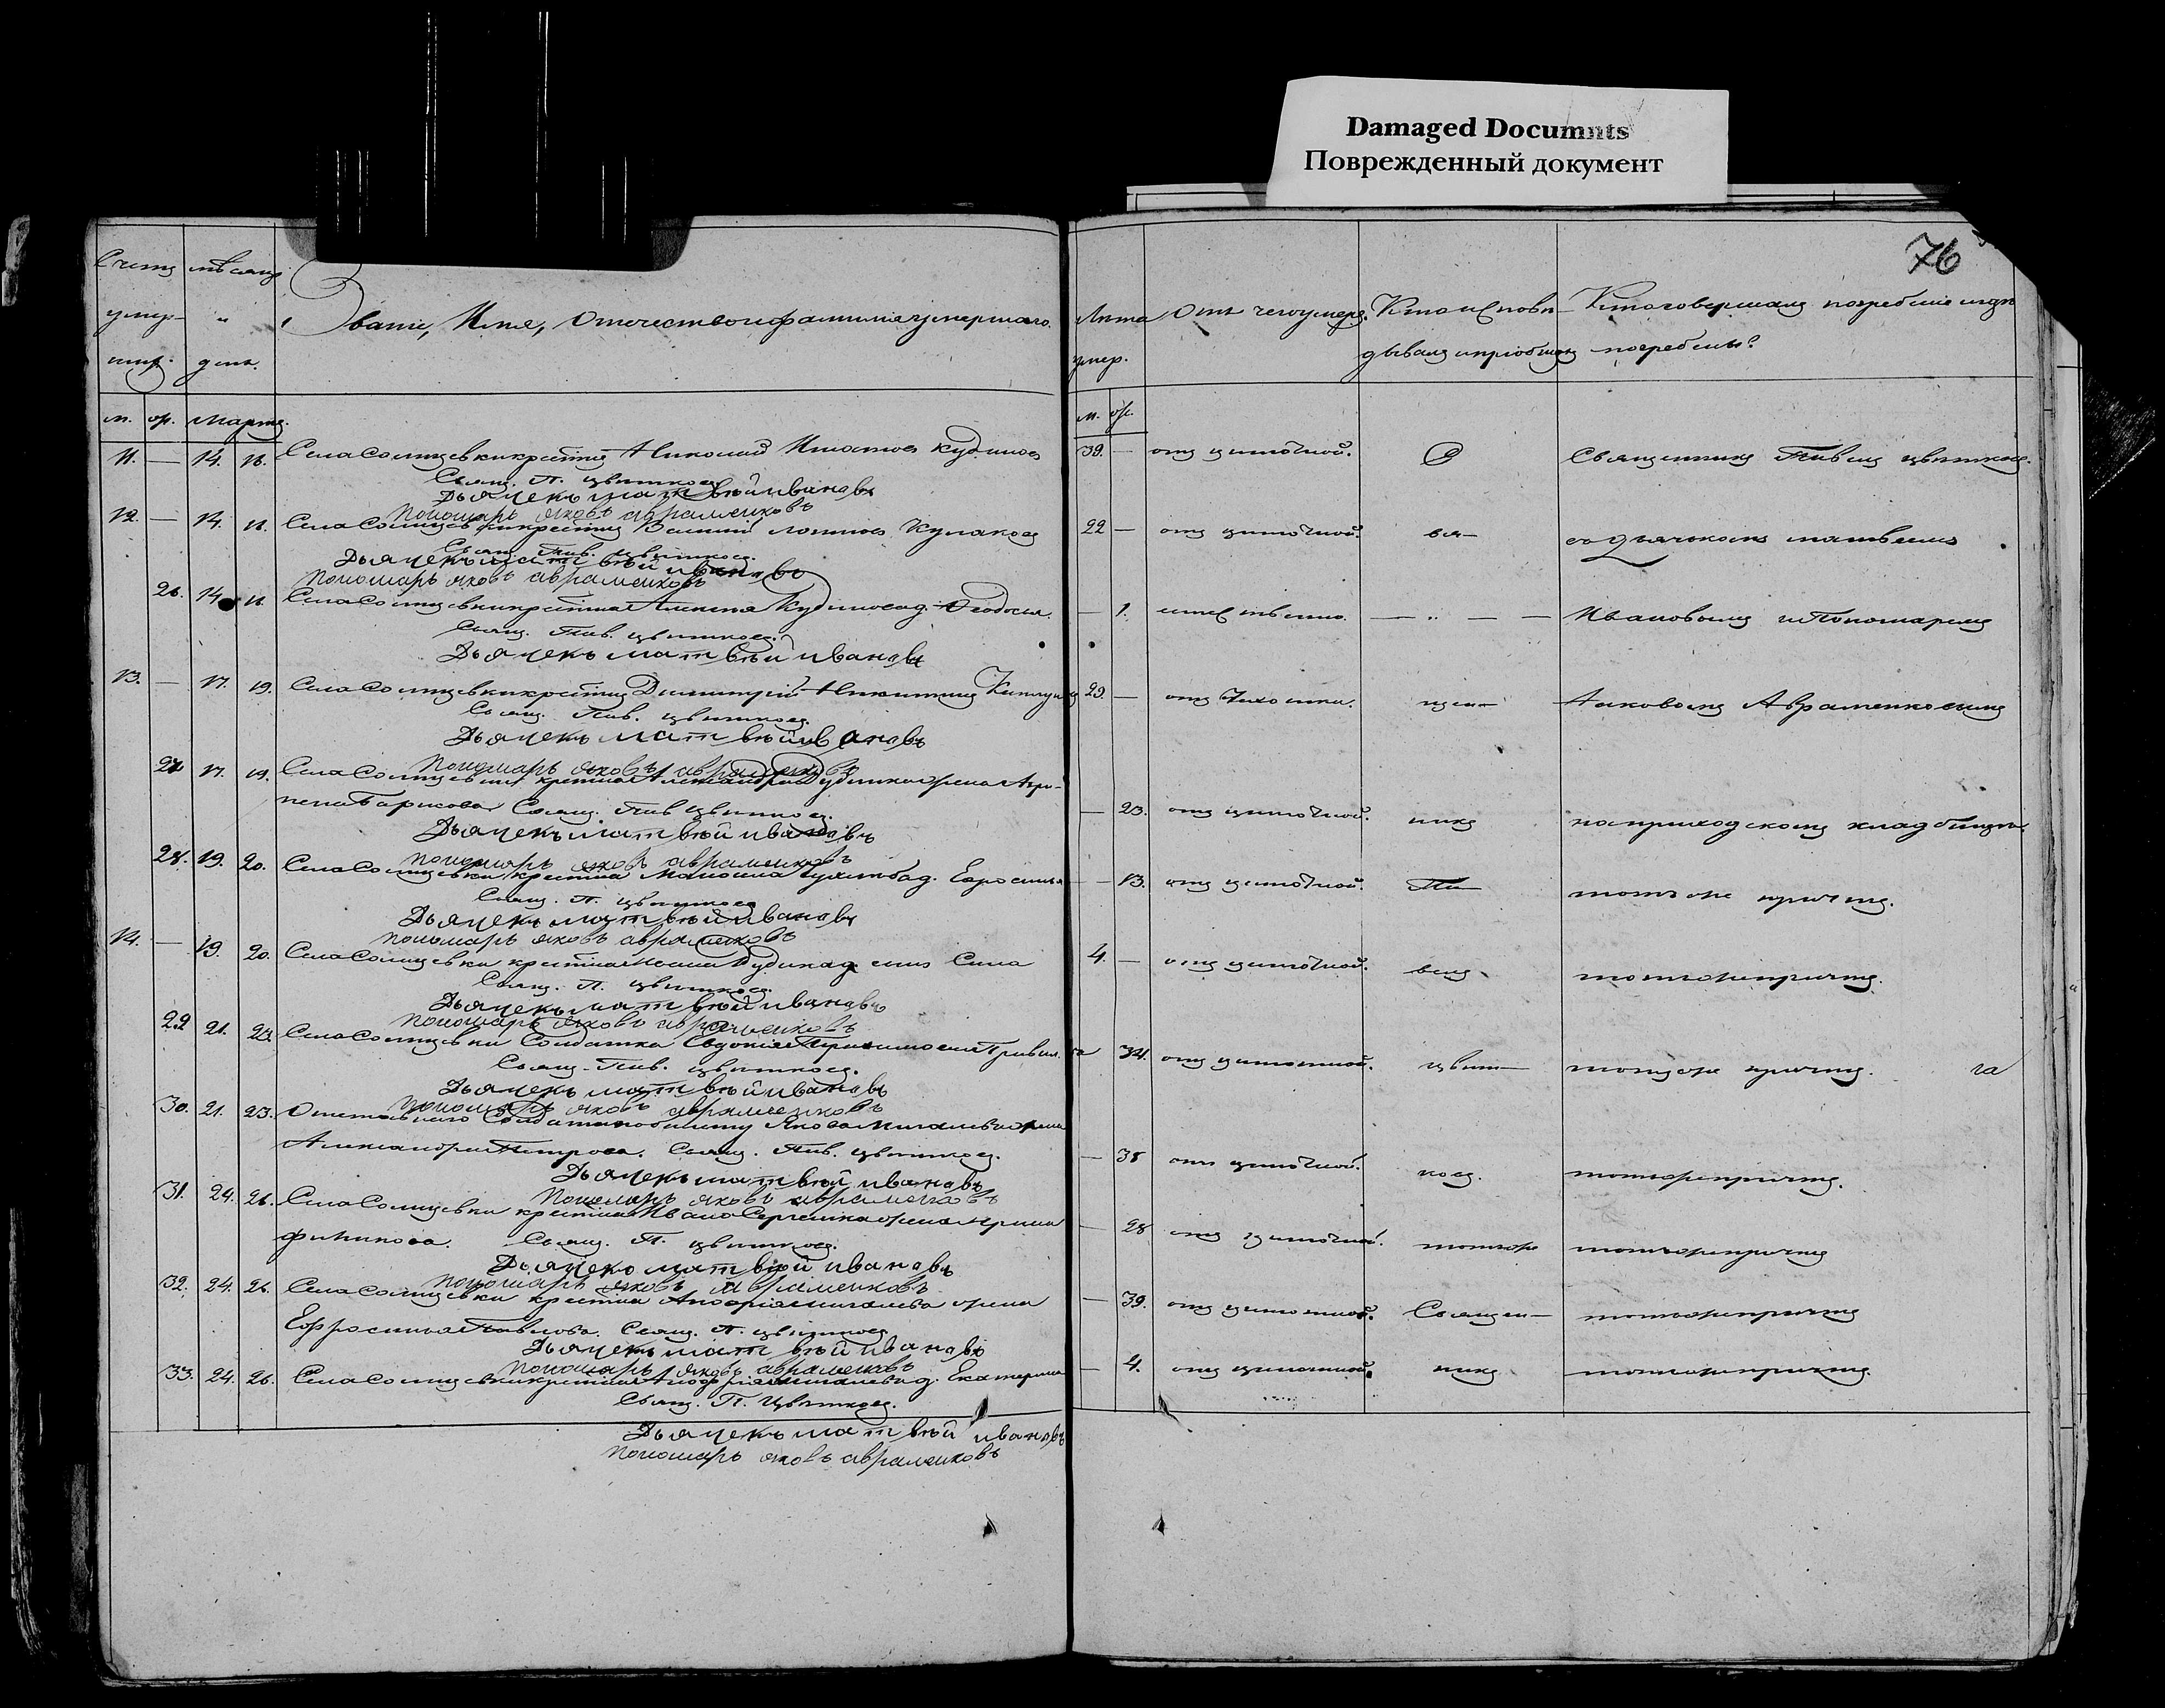 Damaged Documnts
Поврежденный документ
76
Счетъ мѣсяцъ
умер- и Званіе, Имя, Отечество и фамилія умершаго.
ших. день.
Лѣта Отъ чего умеръ. Кто исповѣ- Кто совершалъ погребеніе и гдѣ
умер. дывалъ и пріобщалъ погребены?
м. ж. Марта.
м. ж.
11. — 14. 16. Села Солнцевки крестян Николай Игнатовъ Кудинов
39. — отъ цинготной. Священникъ Павелъ Цвѣтковъ.
Свящ. П. Цвѣтковъ
Дьячекъ матвѣй ивановъ
Пономарь яковъ авраменковъ
12. — 14. 16. Села Солнцевки крестян Кулаковъ
22 — отъ цинготной. вя- съ дьячкомъ матвѣемъ
Свящ. Пав. Цвѣтковъ.
Дьячекъ матвѣй ивановъ
Пономарь яковъ авраменковъ
26. 14. 16. Села Солнцевки крестян Кудинова д. Ѳеодосія.
— 1. — „ — — Ивановымъ и Пономаремъ
Свящ. Пав. Цвѣтковъ.
Дьячекъ матвѣй ивановъ
13. — 17. 19. Села Солнцевки крестян Димитрій Никитинъ
29. — отъ Чахотки. щен- Яковомъ Авраменковымъ
Свящ. Пав. Цвѣтковъ.
Дьячекъ матвѣй ивановъ
Пономарь яковъ авраменковъ
27 17. 19. Села Солнцевки крестян Александра жена Агри-
пена Борисова Свящ. Пав Цвѣтковъ.
— 23. отъ цинготной. никъ на приходскомъ кладбищѣ.
Дьячекъ матвѣй ивановъ
Пономарь яковъ авраменковъ
28. 19. 20. Села Солнцевки крестян д. Ефросинья
— 13. отъ цинготной. Па- тотъ же причтъ.
Свящ. П. Цвѣтковъ
Дьячекъ матвѣй ивановъ
Пономарь яковъ авраменковъ
14. — 19. 20. Села Солнцевки крестян сынъ Сила
4. — отъ цинготной. велъ тотъ же причтъ.
Свящ. П. Цвѣтковъ.
Дьячекъ матвѣй ивановъ
Пономарь яковъ авраменковъ
29 21. 23. Села Солнцевки Солдатка Евдокія
34. отъ цинготной. Цвѣт- тотъ же причтъ. га
Свящ. Пав. Цвѣтковъ.
Дьячекъ матвѣй ивановъ
Пономарь яковъ авраменковъ
30. 21. 23. Отставнаго Солдата по билету Якова жена
Александра Петрова. Свящ. Пав. Цвѣтковъ.
— 38 отъ цинготной. ковъ. тотъ же причтъ.
Дьячекъ матвѣй ивановъ
Пономарь яковъ авраменковъ
31. 24. 26. Села Солнцевки крестян Ивана Сергѣенка жена Ирина
Свящ. П. Цвѣтковъ.
— 28 отъ цинготной. тотъ же тотъ же причтъ
Дьячекъ матвѣй ивановъ
Пономарь яковъ авраменковъ
32. 24. 26. Села Солнцевки крестян Андрія Михалева жена
Ефросинья Павлова. Свящ. П. Цвѣтковъ
— 39. отъ цинготной. Священ- тотъ же причтъ
Дьячекъ матвѣй ивановъ
Пономарь яковъ авраменковъ
33. 24. 26. Села Солнцевки крестян Андрія Михалева д. Екатерина
— 4. отъ цинготной. никъ тотъ же причтъ.
Свящ. П. Цвѣтковъ.
Дьячекъ матвѣй ивановъ
Пономарь яковъ авраменковъ